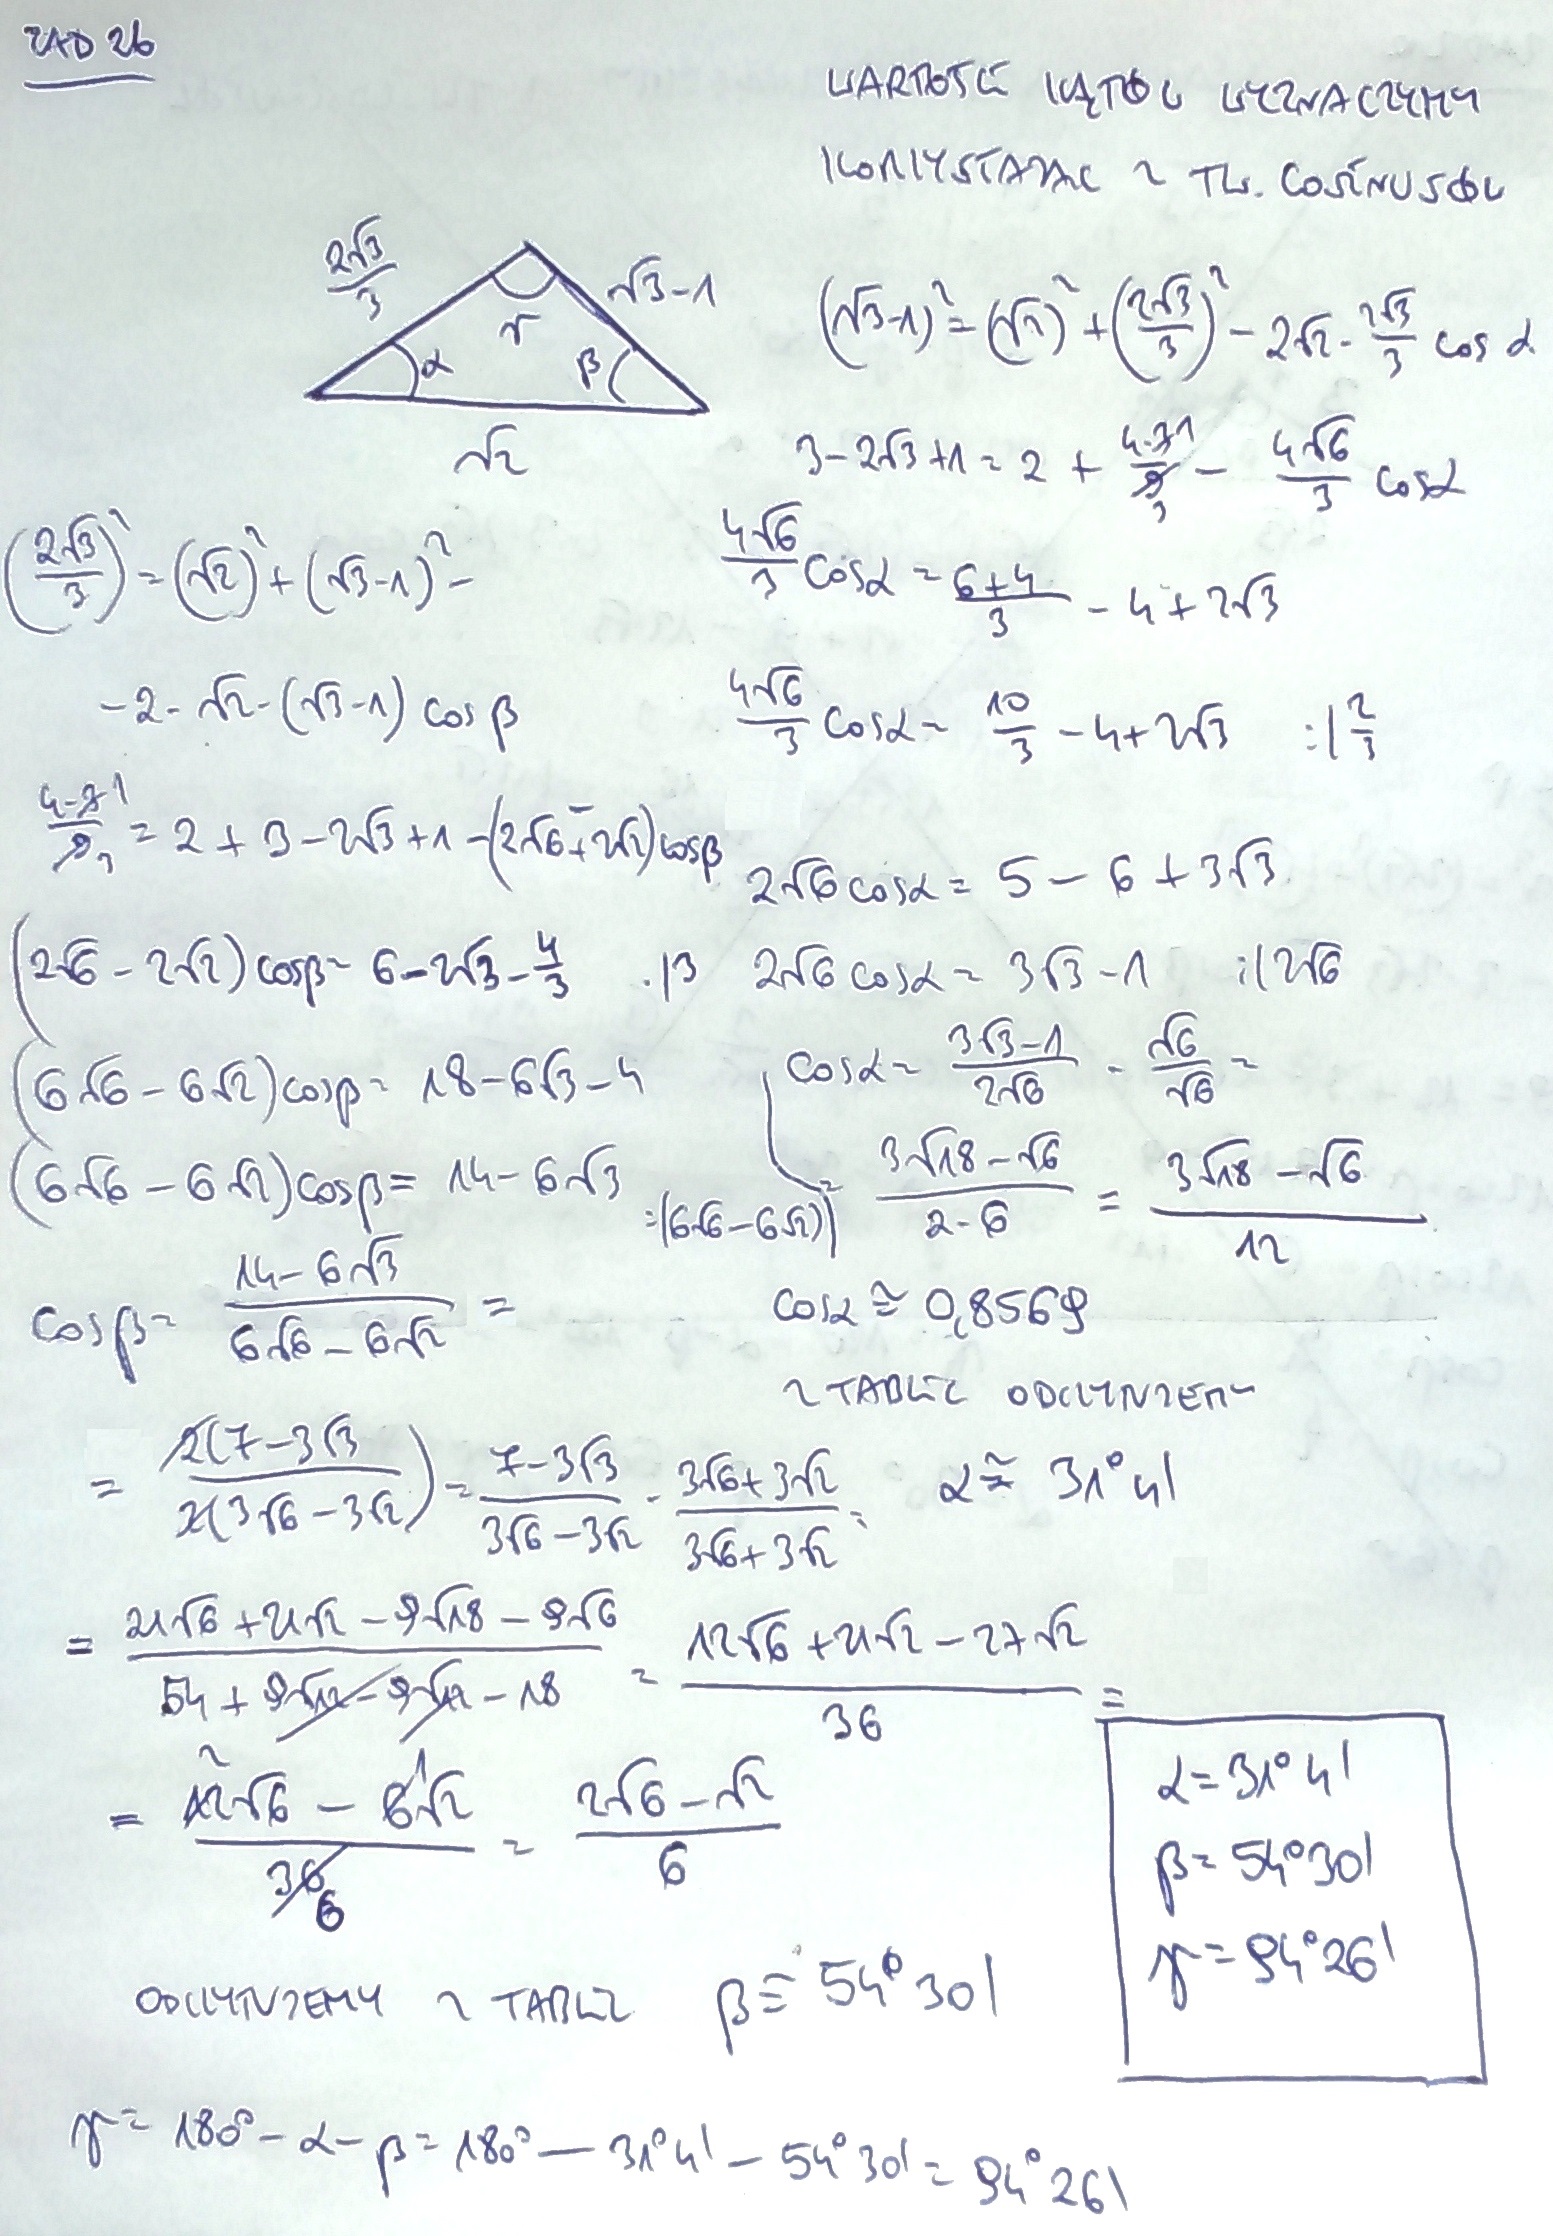 ZAD 26
WARTOŚĆ KĄTÓW WYZNACZYMY
KORZYSTAJĄC Z TW. COSINUSÓW
2√3/3
√3-1
γ
α
β
√2
(√3-1)² = (√2)² + (2√3/3)² - 2√2 · 2√3/3 cos α
3-2√3+1 = 2 + 4·3 1/9 3 - 4√6/3 cosα
4√6/3 cosα = 6+4/3 - 4 + 2√3
4√6/3 cosα = 10/3 - 4 + 2√3 :| 2/3
2√6 cosα = 5 - 6 + 3√3
2√6 cosα = 3√3 - 1 :|2√6
cosα = 3√3-1/2√6 · √6/√6 =
= 3√18-√6/2·6 = 3√18-√6/12
cosα ≅ 0,8569
Z TABLIC ODCZYTUJEMY
α ≅ 31°4'
(2√3/3)² = (√2)² + (√3-1)² -
-2·√2·(√3-1) cos β
4·3 1/9 3 = 2 + 3 - 2√3 + 1 - (2√6 - 2√2) cosβ
(2√6 - 2√2) cosβ = 6 - 2√3 - 4/3 ·|3
(6√6 - 6√2) cosβ = 18 - 6√3 - 4
(6√6 - 6√2) cosβ = 14 - 6√3 :|(6√6-6√2)
cosβ = 14-6√3/6√6-6√2 =
= 2(7-3√3/2(3√6-3√2) = 7-3√3/3√6-3√2 · 3√6+3√2/3√6+3√2 =
= 21√6+21√2-9√18-9√6/54+9√12-9√12-18 = 12√6+21√2-27√2/36 =
= 12 2√6 - 6 1√2/36 6 = 2√6-√2/6
ODCZYTUJEMY Z TABLIC β ≅ 54°30'
γ = 180° - α - β = 180° - 31°4' - 54°30' = 94°26'
α = 31°4'
β = 54°30'
γ = 94°26'